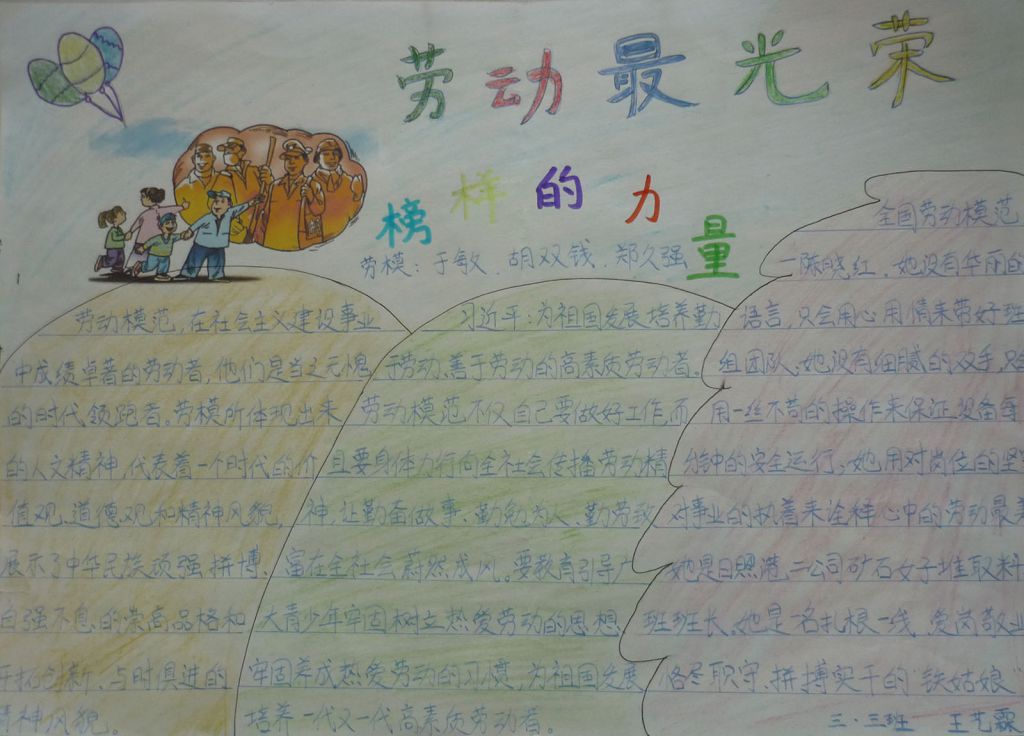 劳动最光荣
榜样的力量
劳模：于敏、胡双钱、郑久强
劳动模范，在社会主义建设事业
中成绩卓著的劳动者，他们是当之无愧
的时代领跑者。劳模所体现出来
的人文精神，代表着一个时代的价
值观、道德观和精神风貌，
展示了中华民族顽强拼博、
自强不息的崇高品格和
开拓创新、与时俱进的
精神风貌。
习近平：为祖国发展培养勤
于劳动、善于劳动的高素质劳动者。
劳动模范不仅自己要做好工作，而
且要身体力行向全社会传播劳动精
神，让勤奋做事、勤勉为人、勤劳致
富在全社会蔚然成风。要教育引导广
大青少年牢固树立热爱劳动的思想、
牢固养成热爱劳动的习惯，为祖国发展
培养一代又一代高素质劳动者。
全国劳动模范
—陈晓红，她没有华丽的
语言，只会用心用情来带好班
组团队；她没有细腻的双手，只会
用一丝不苟的操作来保证设备每
的安全运行；她用对岗位的坚
对事业的执着来诠释心中的劳动最美
她是日照港二公司矿石女子堆取料
班班长，她是一名扎根一线、爱岗敬业
恪尽职守、拼搏实干的“铁姑娘”
三·三班 王艺霖